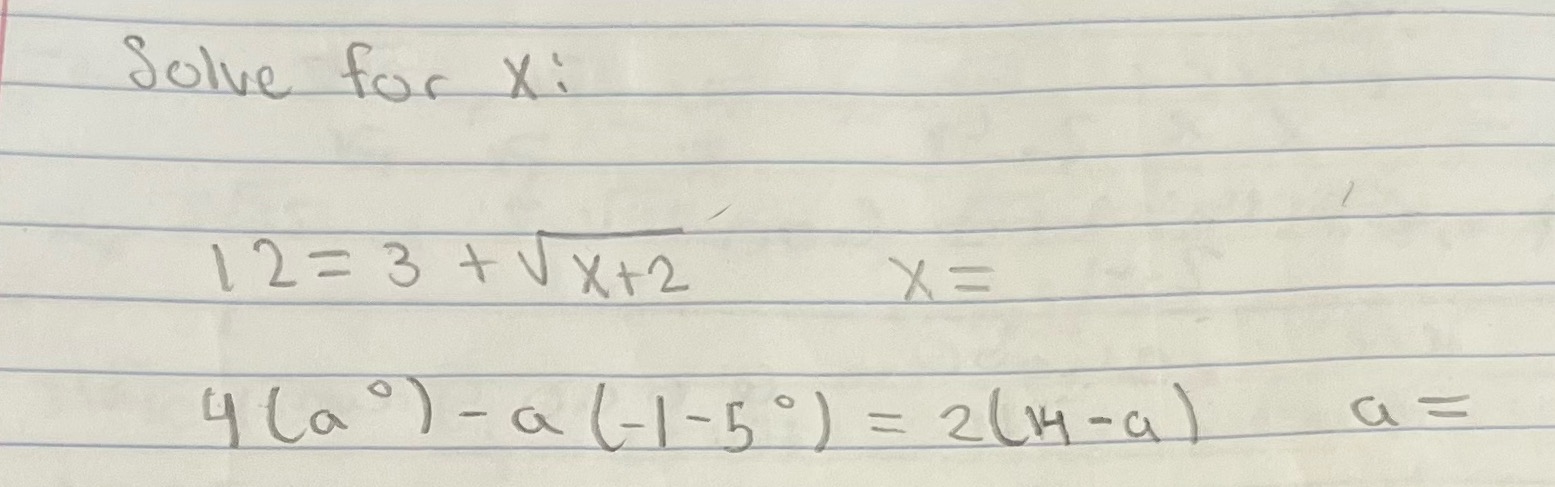 Solve for x:
12 = 3 + √x+2 x =
4(a°) - a(-1-5°) = 2(14-a) a =